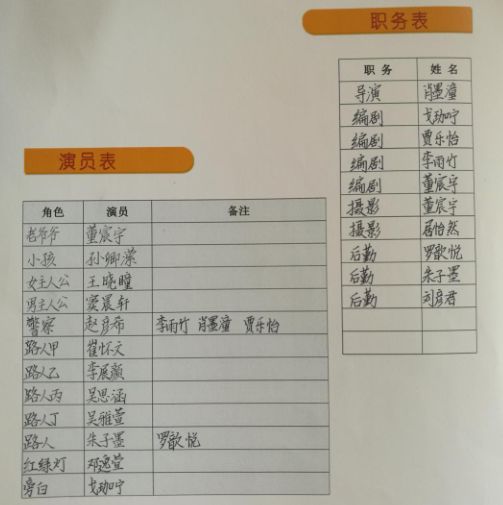 职务表
职务 姓名
导演 肖墨潼
编剧 戈玏咛
编剧 贾乐怡
编剧 李雨竹
编剧 董宸宇
摄影 董宸宇
摄影 居怡然
后勤 罗歆悦
后勤 朱子墨
后勤 刘彦君
演员表
角色 演员 备注
老爷爷 董宸宇
小孩 孙卿濛
女主人公 王晓瞳
男主人公 窦晨轩
警察 赵彦希 李雨竹 肖墨潼 贾乐怡
路人甲 崔怀文
路人乙 李展颜
路人丙 吴思涵
路人丁 吴雅萱
路人 朱子墨 罗歆悦
红绿灯 邓逸萱
旁白 戈玏咛